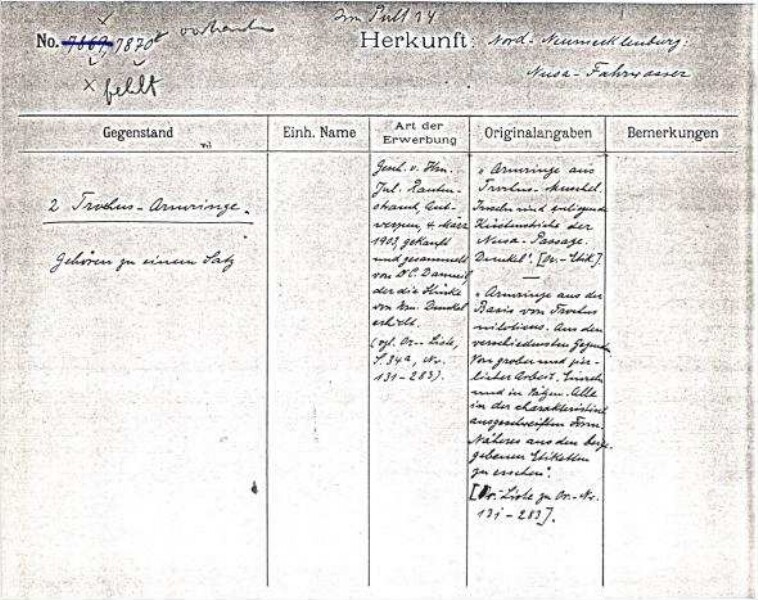 Im Pult 14
No. 7869, 7870 vorhanden
Herkunft: Nord-Neumecklenburg:
× fehlt
Nusa-Fahrwasser
Gegenstand
Einh. Name
Art der Erwerbung
Originalangaben
Bemerkungen
2 Trochus-Armringe.
Gehören zu einem Satz
Gesch. v. Hrn.
Jul. Rauten-
strauch, Ant-
werpen, 4. März
1903, gekauft
und gesammelt
von Dr C. Danneil,
der die Stücke
von Hrn. Dunkel
erhielt.
(vgl. Or.-Liste,
S. 34a, Nr.
131-283).
"Armringe aus
Trochus-Muschel.
Inseln und umliegende
Küstenstriche der
Nusa-Passage.
Dunkel". [Or.-Etik].
"Armringe aus der
Basis von Trochus
niloticus. Aus den
verschiedensten Gegenden
Von grober und zier-
licher Arbeit. Einzeln
und in Sätzen. Alle
in der charakteristisch
ausgeschweiften Form.
Näheres aus den beige-
gebenen Etiketten
zu ersehen".
[Or.-Liste zu Or.-Nr.
131-283].